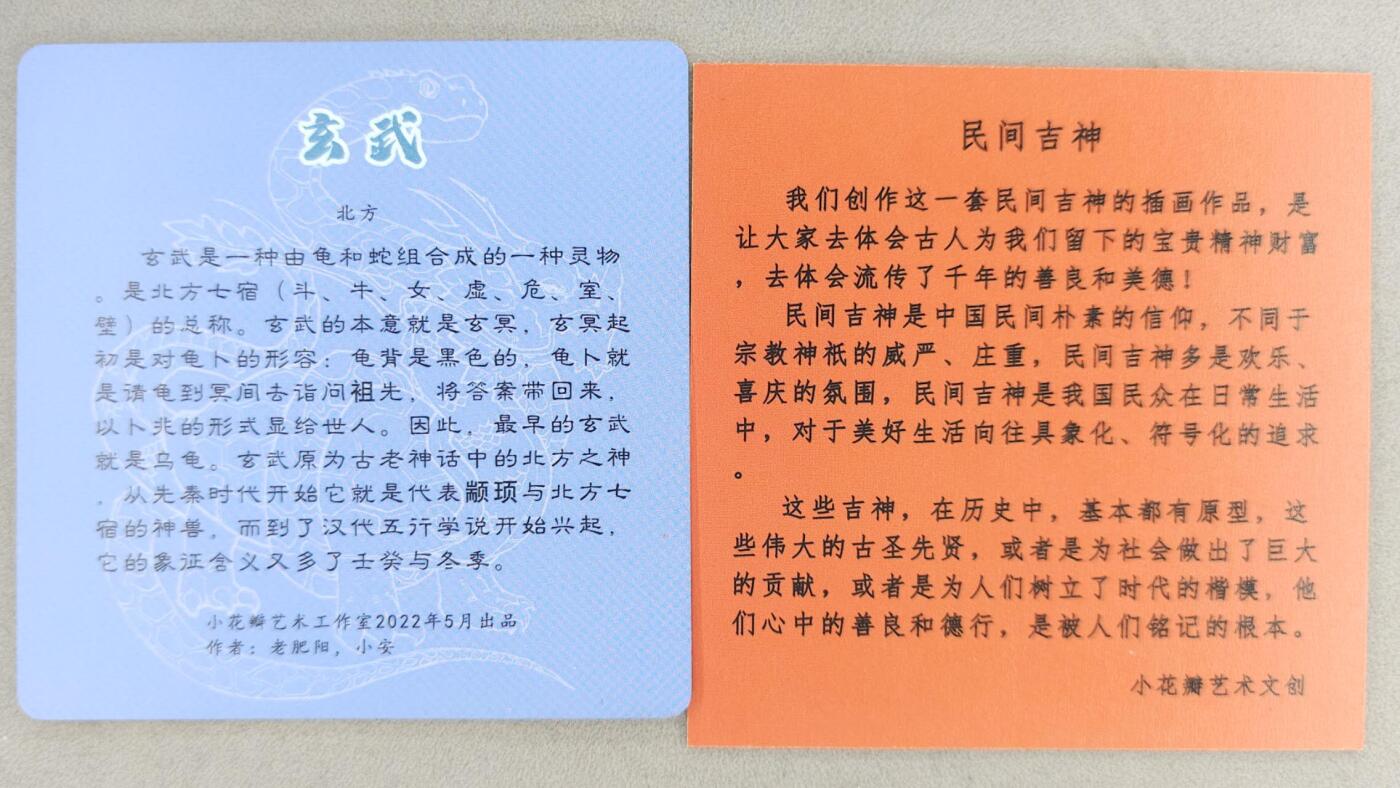 玄武
北方
玄武是一种由龟和蛇组合成的一种灵物
。是北方七宿（斗、牛、女、虚、危、室、
壁）的总称。玄武的本意就是玄冥，玄冥起
初是对龟卜的形容：龟背是黑色的，龟卜就
是请龟到冥间去诣问祖先，将答案带回来，
以卜兆的形式显给世人。因此，最早的玄武
就是乌龟。玄武原为古老神话中的北方之神
，从先秦时代开始它就是代表颛顼与北方七
宿的神兽，而到了汉代五行学说开始兴起，
它的象征含义又多了壬癸与冬季。
小花瓣艺术工作室2022年5月出品
作者：老肥阳，小安
民间吉神
我们创作这一套民间吉神的插画作品，是
让大家去体会古人为我们留下的宝贵精神财富
，去体会流传了千年的善良和美德！
民间吉神是中国民间朴素的信仰，不同于
宗教神祇的威严、庄重，民间吉神多是欢乐、
喜庆的氛围，民间吉神是我国民众在日常生活
中，对于美好生活向往具象化、符号化的追求
。
这些吉神，在历史中，基本都有原型，这
些伟大的古圣先贤，或者是为社会做出了巨大
的贡献，或者是为人们树立了时代的楷模，他
们心中的善良和德行，是被人们铭记的根本。
小花瓣艺术文创